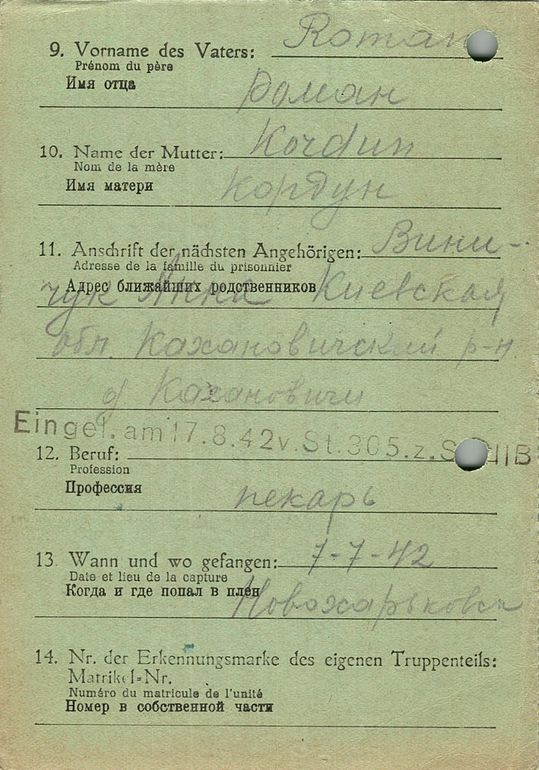 9. Vorname des Vaters: Roman
Prénom du père
Имя отца
Роман
10. Name der Mutter: Kordun
Nom de la mère
Имя матери
Кордун
11. Anschrift der nächsten Angehörigen: Вини-
Adresse de la famille du prisonnier
Адрес ближайших родственников
чук Анна Киевская
обл Кахановичский р-н
д Кахановичи
Eingel. am 17.8.42 v. St. 305. z. S IIB
12. Beruf:
Profession
Профессия
пекарь
13. Wann und wo gefangen: 7-7-42
Date et lieu de la capture
Когда и где попал в плен
14. Nr. der Erkennungsmarke des eigenen Truppenteils:
Matrikel-Nr.
Numéro du matricule de l'unité
Номер в собственной части